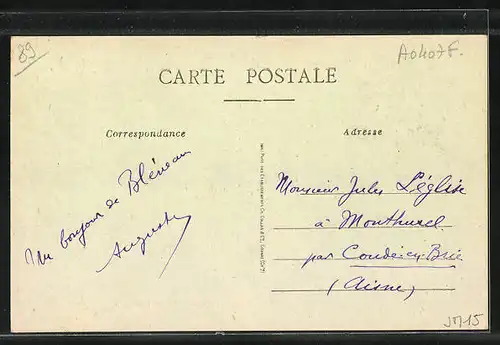 89
A0407F.
CARTE POSTALE
Correspondance
Adresse
Un bonjour de Bléneau
Auguste
Monsieur Jules Léglise
à Monthurel
par Condé-en-Brie
(Aisne)